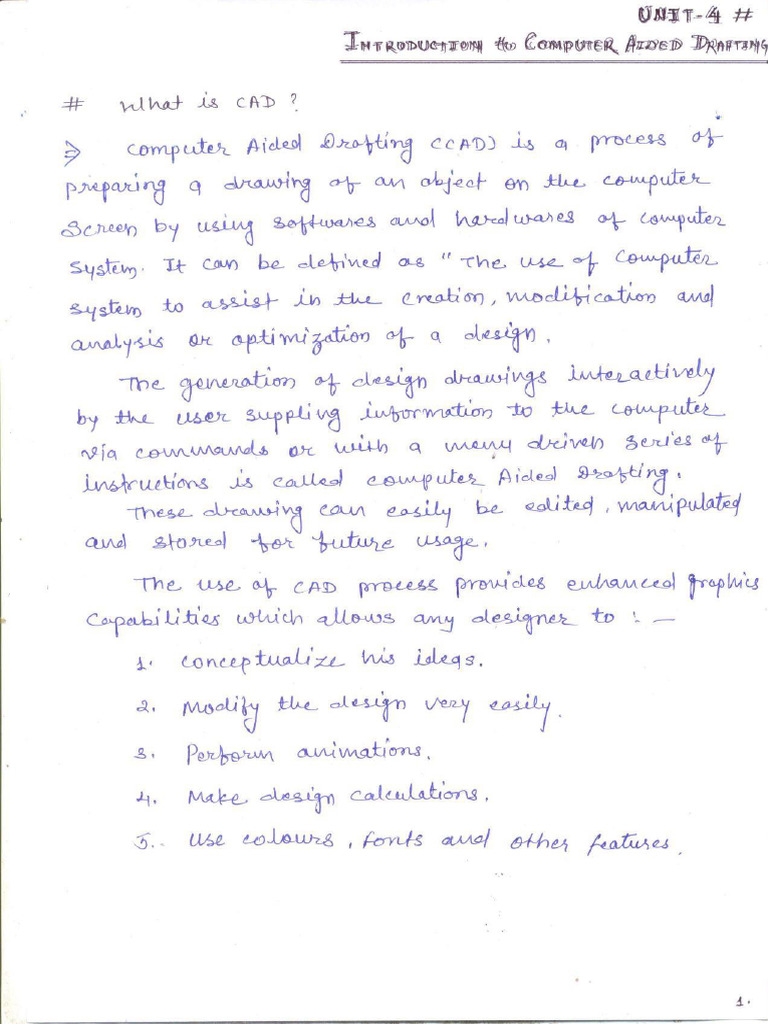 UNIT-4 #
INTRODUCTION to COMPUTER AIDED DRAFTING
# What is CAD ?
⇒ Computer Aided Drafting (CAD) is a process of
preparing a drawing of an object on the computer
Screen by using softwares and hardwares of computer
system. It can be defined as " The use of computer
system to assist in the creation, modification and
analysis or optimization of a design.
The generation of design drawings interactively
by the user suppling information to the computer
via commands or with a menu driven series of
instructions is called computer Aided Drafting.
These drawing can easily be edited, manipulated
and stored for future usage.
The use of CAD process provides enhanced graphics
Capabilities which allows any designer to : —
1. Conceptualize his ideas.
2. Modify the design very easily.
3. Perform animations.
4. Make design calculations.
5. Use colours, fonts and other features.
1.